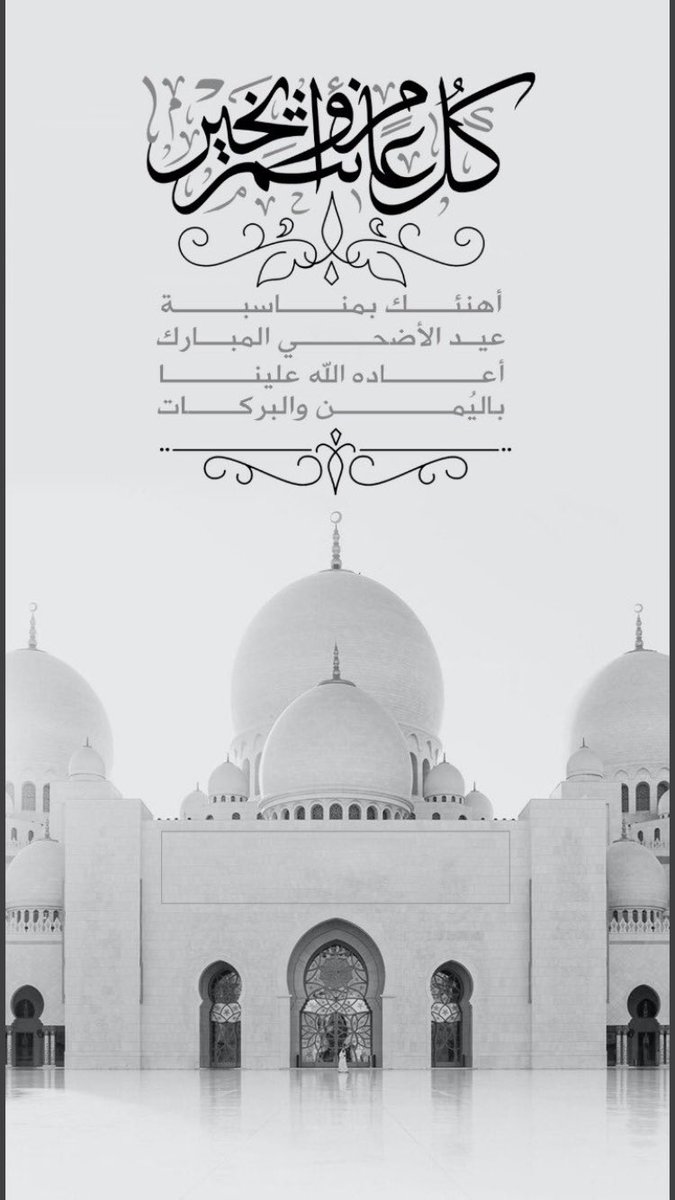 كل عام وأنتم بخير
أهنئك بمناسبة
عيد الأضحي المبارك
أعاده الله علينا
باليُمن والبركات